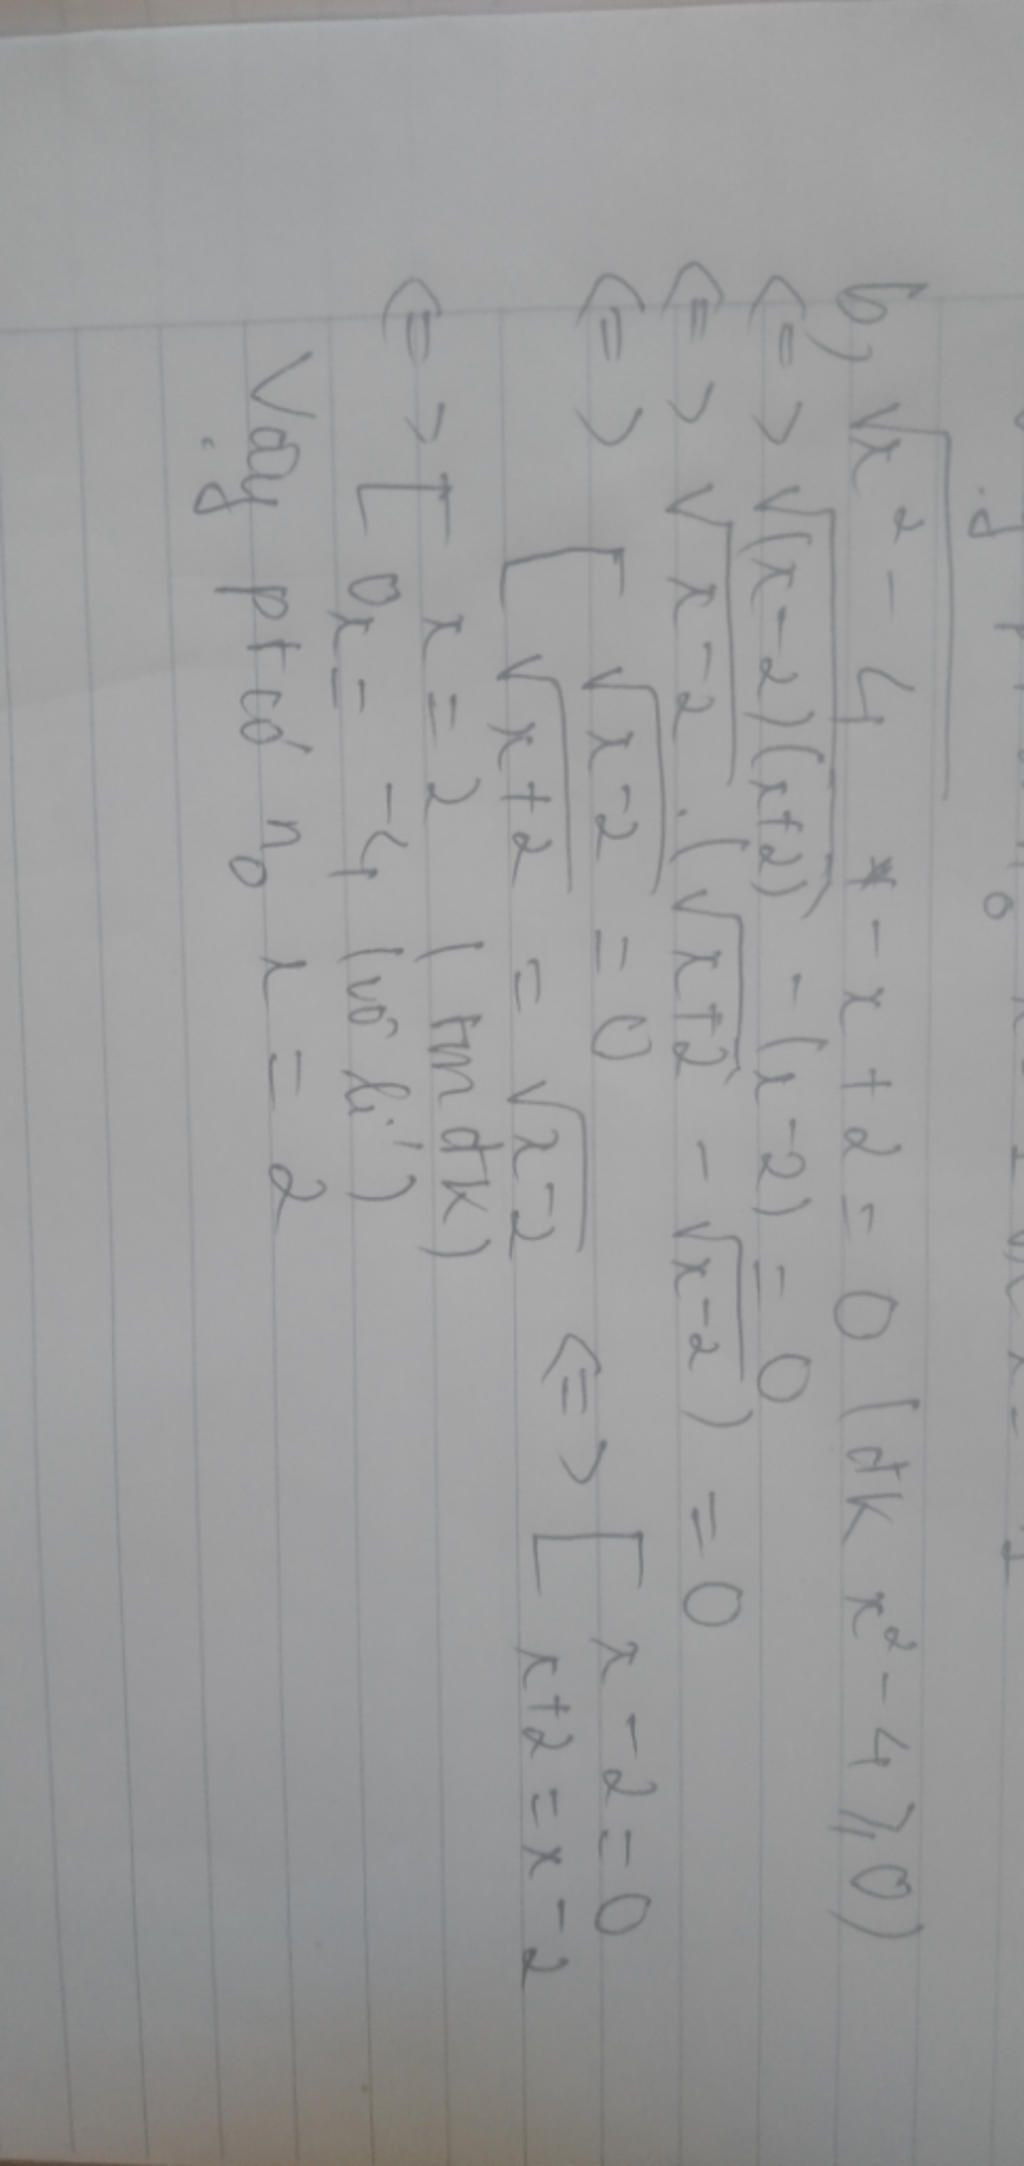 b, √(x² - 4) - x + 2 = 0 (đk x² - 4 ⩾ 0)
<=> √((x-2)(x+2)) - (x-2) = 0
<=> √(x-2) . (√(x+2) - √(x-2)) = 0
<=> [ √(x-2) = 0 <=> [ x - 2 = 0
√(x+2) = √(x-2) x+2 = x-2
<=> [ x = 2 (tm đk)
0x = -4 (vô lí)
Vậy pt có n₀ x = 2